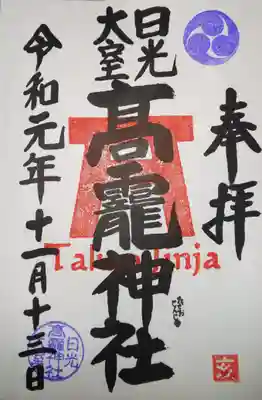 奉拝
日光
大室
高龗神社
Takaojinja
令和元年十一月十三日
日光
高龗神社